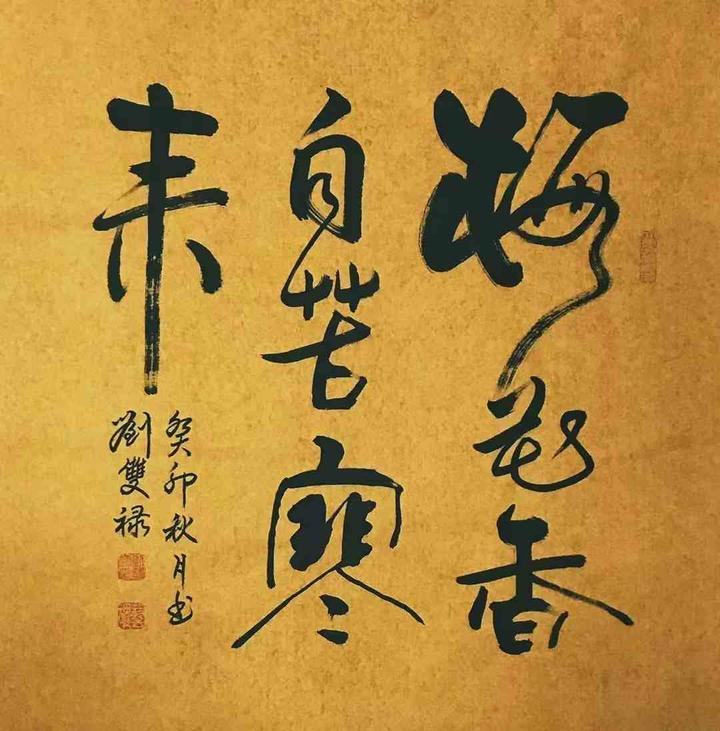 梅花香
自苦寒
来
癸卯秋月书
劉雙禄